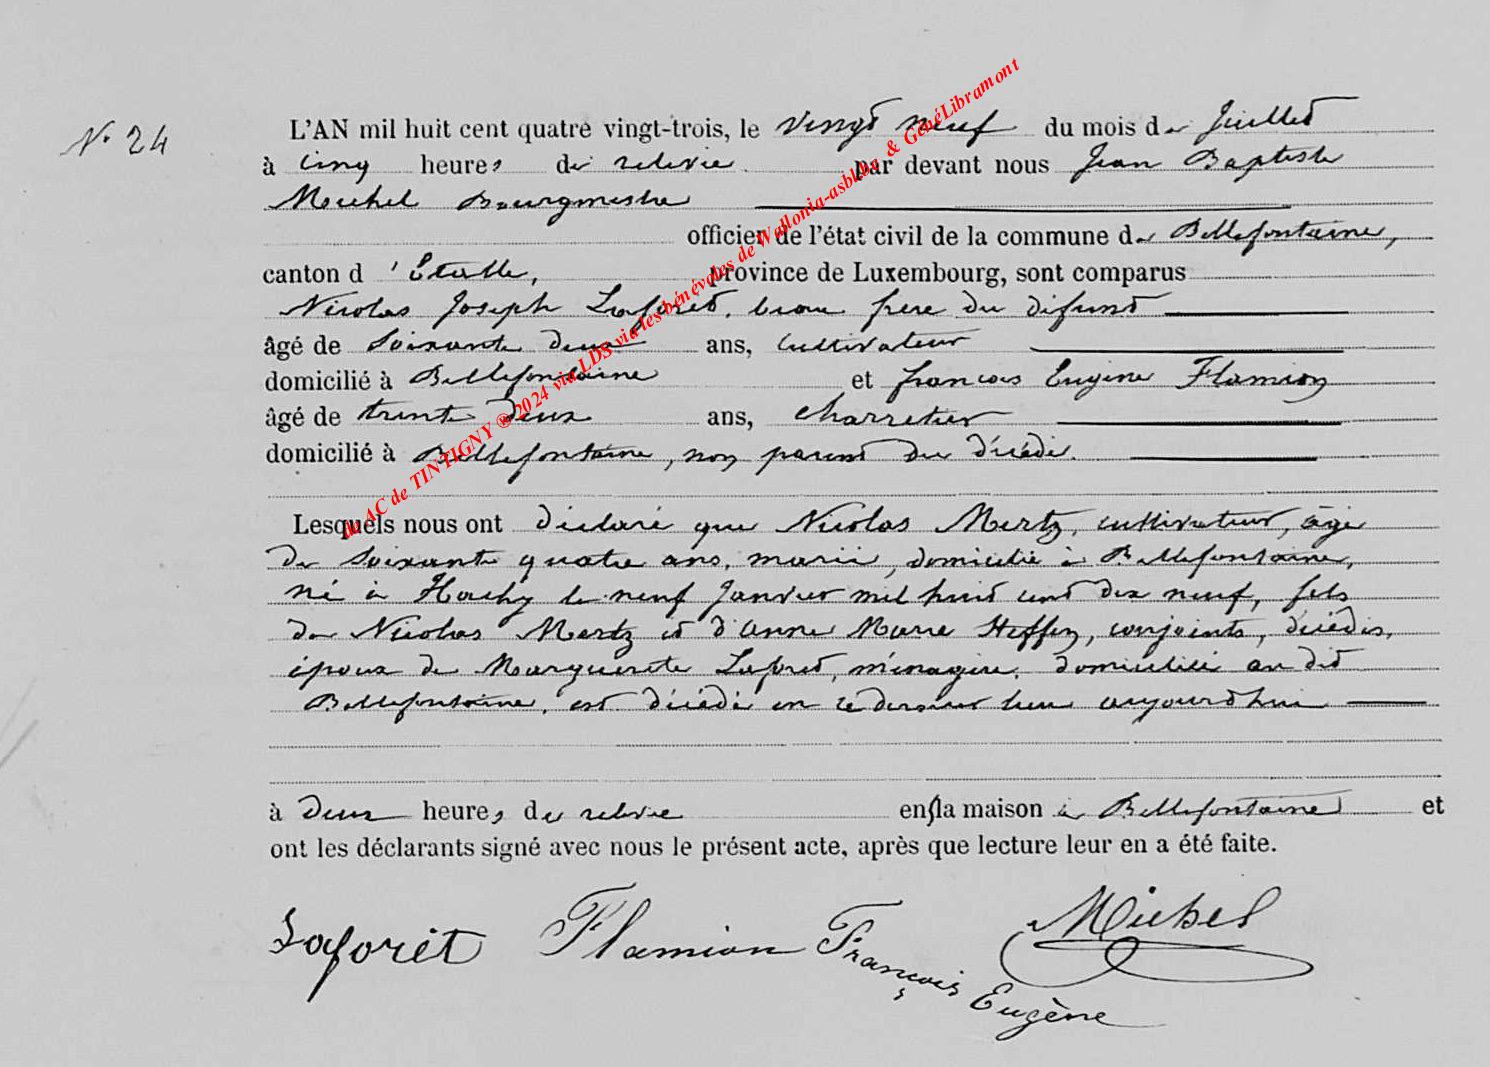 N° 24
L'AN mil huit cent quatre vingt-trois, le vingt neuf du mois de Juillet
à cinq heures de relevée par devant nous Jean Baptiste
Michel Bourgmestre
officier de l'état civil de la commune de Bellefontaine,
canton d'Etalle, province de Luxembourg, sont comparus
Nicolas Joseph Laforet, beau frère du défunt
âgé de soixante deux ans, cultivateur
domicilié à Bellefontaine et francois Eugène Flamion
âgé de trente deux ans, charretier
domicilié à Bellefontaine, non parent du décédé.
Lesquels nous ont déclaré que Nicolas Mertz, cultivateur, âgé
de soixante quatre ans, marié, domicilié à Bellefontaine,
né à Hachy le neuf Janvier mil huit cent dix neuf, fils
de Nicolas Mertz et d'anne Marie Steffen, conjoints, décédés,
époux de Marguerite Laforet, ménagère, domiciliée au dit
Bellefontaine, est décédé en ce dernier lieu aujourd'hui
à deux heures de relevée en sa maison à Bellefontaine et
ont les déclarants signé avec nous le présent acte, après que lecture leur en a été faite.
Laforêt Flamion François Eugène Michel
de AC de TINTIGNY ® 2024 via LDS via les bénévoles de Wallonia-asblbe & GénéLibramont